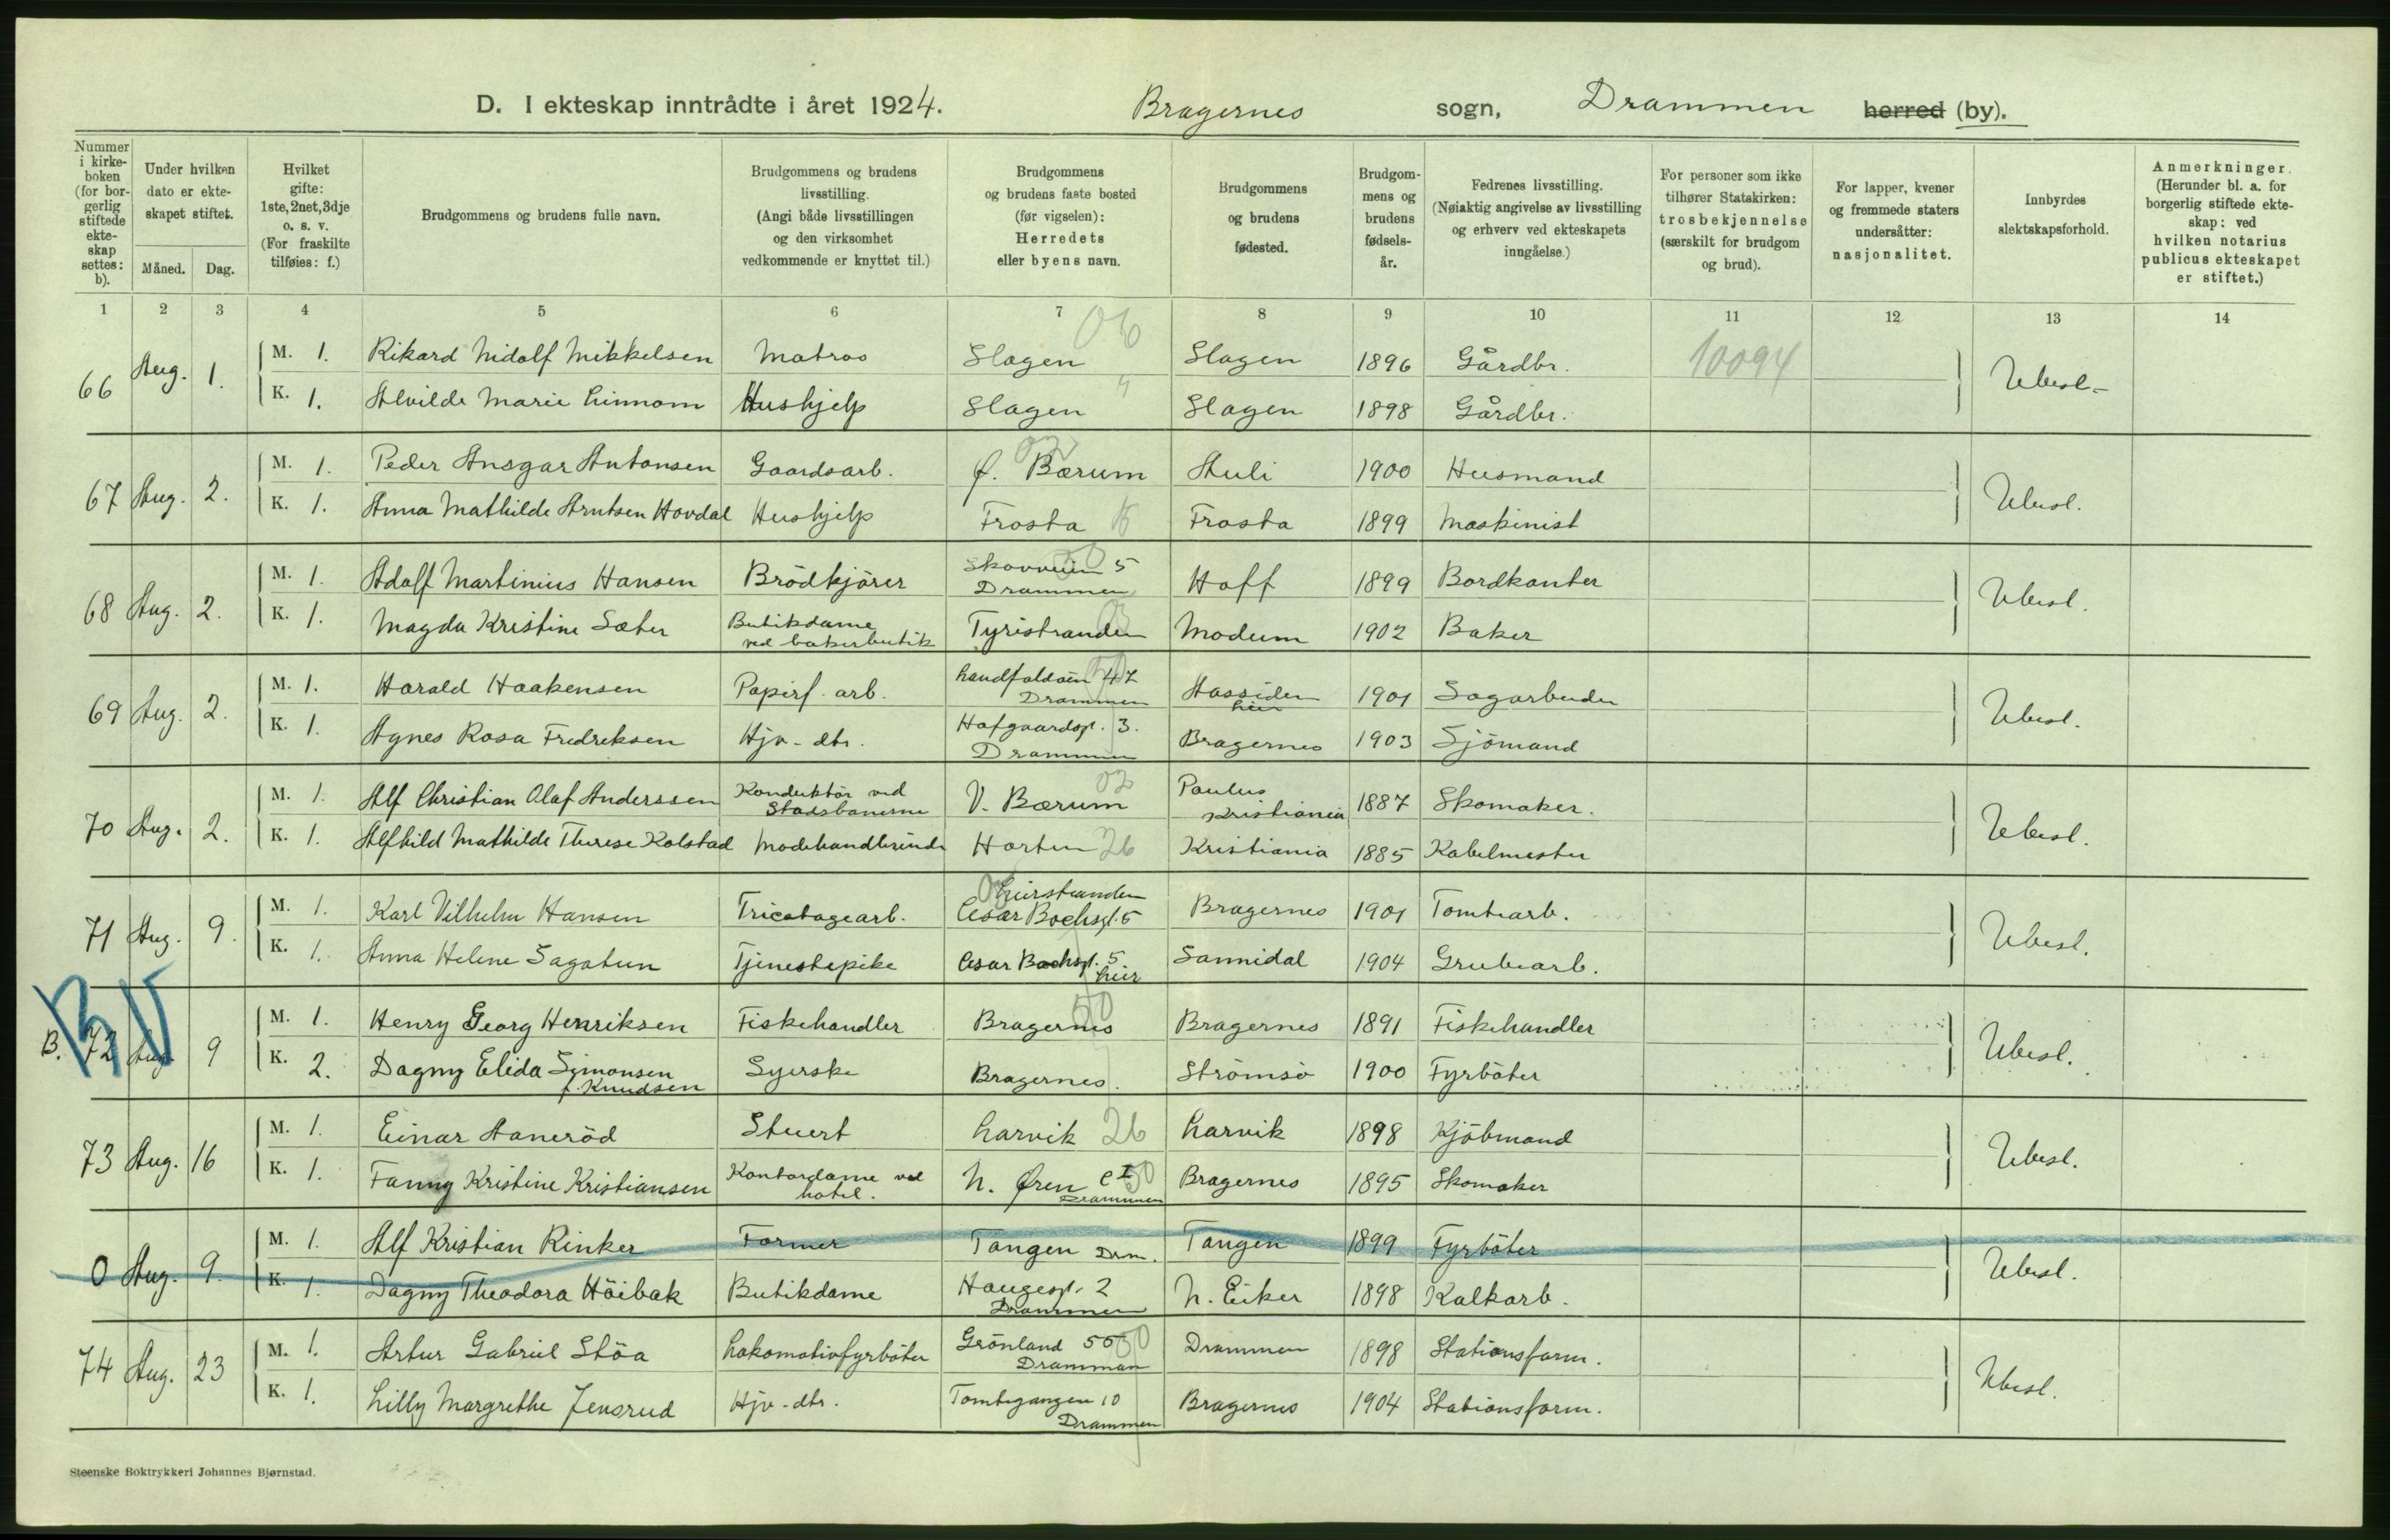 D. I ekteskap inntrådte i året 1924. Bragernes sogn, Drammen herred (by).
Nummer i kirkeboken (for borgerlig stiftede ekteskap settes: b).
Under hvilken dato er ekteskapet stiftet.
Måned. Dag.
Hvilket gifte: 1ste, 2net, 3dje o. s. v. (For fraskilte tilføies: f.)
Brudgommens og brudens fulle navn.
Brudgommens og brudens livsstilling. (Angi både livsstillingen og den virksomhet vedkommende er knyttet til.)
Brudgommens og brudens faste bosted (før vigselen): Herredets eller byens navn.
Brudgommens og brudens fødested.
Brudgommens og brudens fødselsår.
Fedrenes livsstilling. (Nøiaktig angivelse av livsstilling og erhverv ved ekteskapets inngåelse.)
For personer som ikke tilhører Statskirken: trosbekjennelse (særskilt for brudgom og brud).
For lapper, kvener og fremmede staters undersåtter: nasjonalitet.
Innbyrdes slektskapsforhold.
Anmerkninger. (Herunder bl. a. for borgerlig stiftede ekteskap: ved hvilken notarius publicus ekteskapet er stiftet.)
1 2 3 4 5 6 7 8 9 10 11 12 13 14
66 Aug. 1. M. 1. Rikard Nidolf Mikkelsen Matros Slagen 06 Slagen 1896 Gårdbr. 10094 Ubesl.
K. 1. Alvilde Marie Linnom Hushjelp Slagen " Slagen 1898 Gårdbr.
67 Aug. 2. M. 1. Peder Ansgar Antonsen Gaardsarb. Ø. Bærum 02 Auli 1900 Husmand Ubesl.
K. 1. Anna Mathilde Arntsen Hovdal Hushjelp Frosta Frosta 1899 Maskinist
68 Aug. 2. M. 1. Adolf Martinius Hansen Brödkjörer Skovveien 5 Drammen Hoff 1899 Bordkanter Ubesl.
K. 1. Magda Kristine Sæter Butikdame ved bakerbutik Tyristranden Modum 1902 Baker
69 Aug. 2. M. 1. Harald Haakensen Papirf. arb. Landfaldöin 47 Drammen Aassiden her 1901 Sagarbeider Ubesl.
K. 1. Agnes Rosa Fredreksen Hjv-dtr. Hafgaardsgt. 3. Drammen Bragernes 1903 Sjömand
70 Aug. 2. M. 1. Alf Christian Olaf Anderssen Konduktör ved Stadsbanerne V. Bærum 02 Paulus Kristiania 1887 Skomaker. Ubesl.
K. 1. Alfhild Mathilde Therese Kolstad Modehandlerinde Horten 26 Kristiania 1885 Kabelmester
71 Aug. 9. M. 1. Karl Vilhelm Hansen Tricotagearb. Lierstranden Cesar Bochsgt. 5 Bragernes 1901 Tomtearb. Ubesl.
K. 1. Anna Helene Sagatun Tjenestepike Cesar Bochsgt. 5 her Sannidal 1904 Grubearb.
B. 72 Aug. 9 M. 1. Henry Georg Henriksen Fiskehandler Bragernes 50 Bragernes 1891 Fiskehandler Ubesl.
K. 2. Dagny Elida Symonsen f. Knudsen Syerske Bragernes. Strömsö 1900 Fyrböter
73 Aug. 16 M. 1. Einar Haneröd Stuert Larvik 26 Larvik 1898 Kjöbmand Ubesl.
K. 1. Fanny Kristine Kristiansen Kontordame ved hotel. N. Øren C I 50 Drammen Bragernes 1895 Skomaker
0 Aug. 9. M. 1. Alf Kristian Rinker Former Tangen Drm. Tangen 1899 Fyrböter Ubesl.
K. 1. Dagny Theodora Höibak Butikdame Haugesgt. 2 Drammen N. Eiker 1898 Kalkarb.
74 Aug. 23 M. 1. Artur Gabriel Stöa Lokomotivfyrböter Grönland 55 50 Drammen Drammen 1898 Stationsform. Ubesl.
K. 1. Lilly Margrethe Jensrud Hjv-dtr. Tomtegangen 10 Drammen Bragernes 1904 Stationsform.
Steenske Boktrykkeri Johannes Bjørnstad.